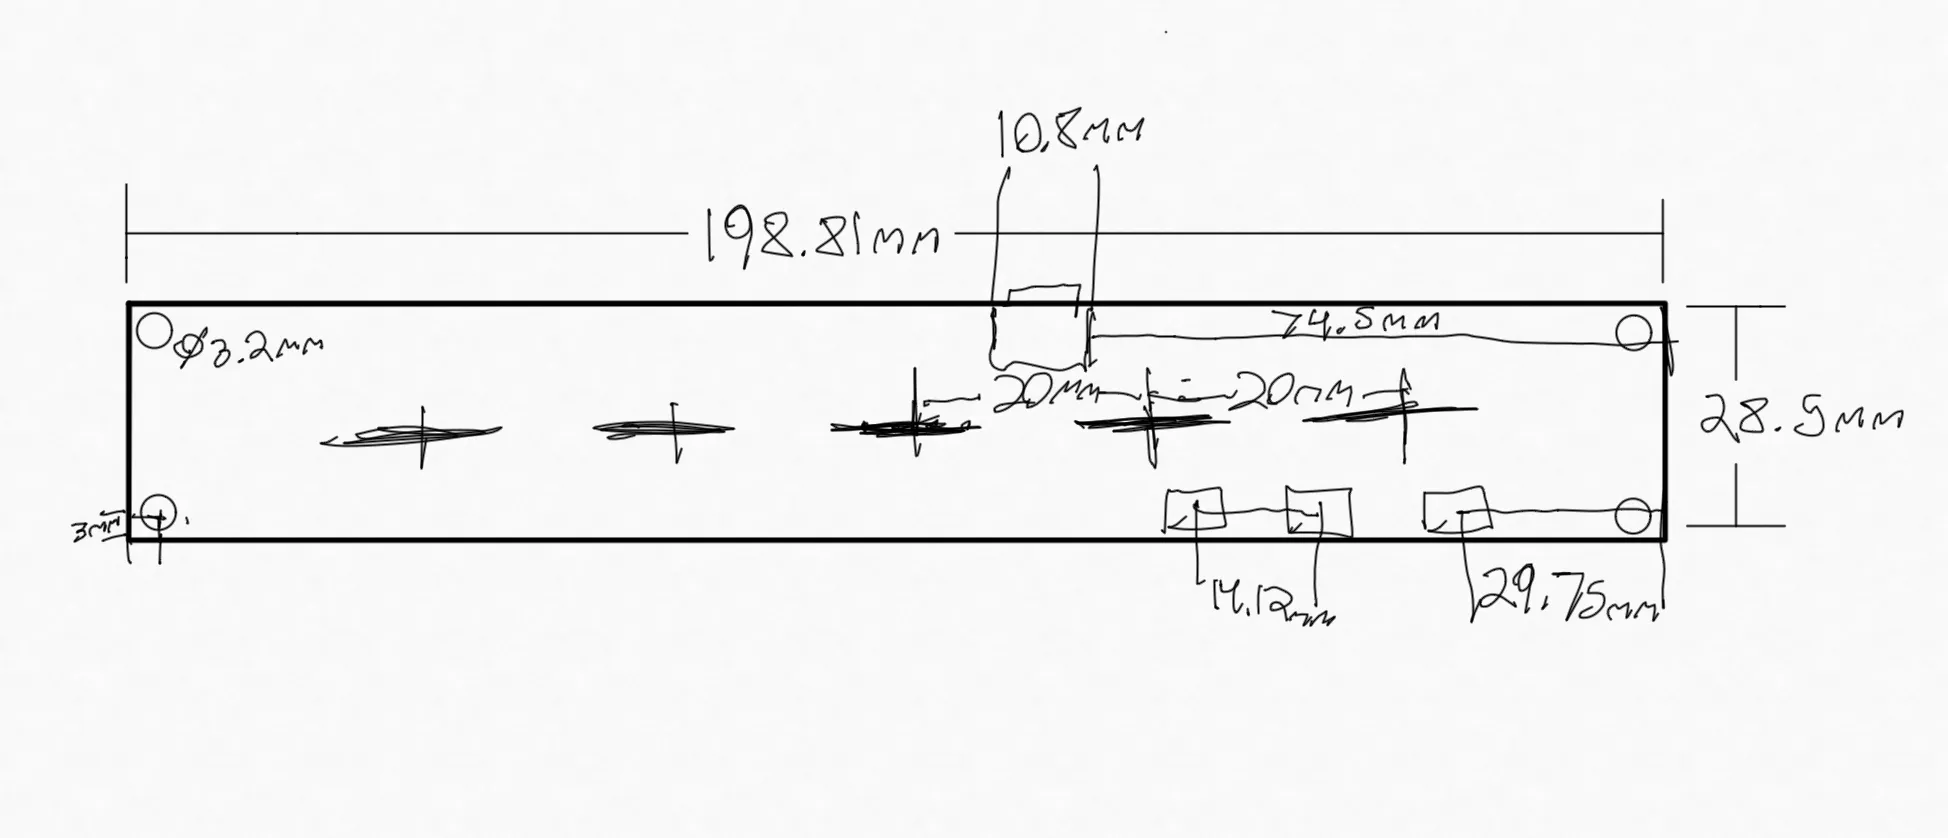 10.8mm
198.81mm
74.5mm
Ø3.2mm
20mm
20mm
28.5mm
3mm
14.12mm
29.75mm